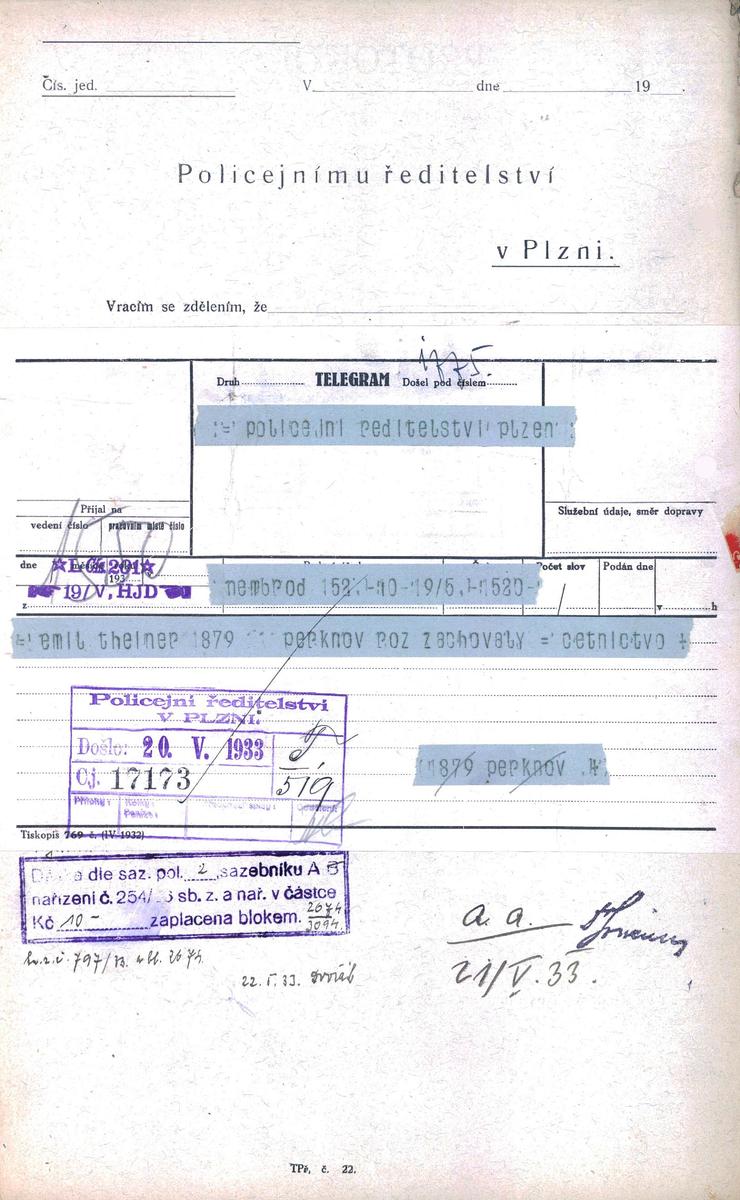 Čís. jed. V dne 19 .
Policejnímu ředitelství
v Plzni.
Vracím se zdělením, že
1775.
Druh TELEGRAM Došel pod číslem
:= policejni reditelstvi plzen
Přijal na
vedení číslo pracovním místě číslo
Služební údaje, směr dopravy
dne 193 Počet slov Podán dne
☆ ☆
19/V, HJD
z v h
nembrod 152 -40-19/5 -1520-
= emil theiner 1879 perknov roz zachovaly = cetnictvo +
Policejní ředitelství
V PLZNI.
Došlo: 20. V. 1933
Čj. 17173
519
1879 perknov .+
Přílohy:
Tiskopis 769 č. (IV-1932)
dle saz. pol. 2 sazebníku A B
nařízení č. 254/ sb. z. a nař. v částce
Kč 10- zaplacena blokem. 2674
3094
797/33 2674
22.V.33. Dvořák
a. a.
21/V. 33.
TPř, č. 22.